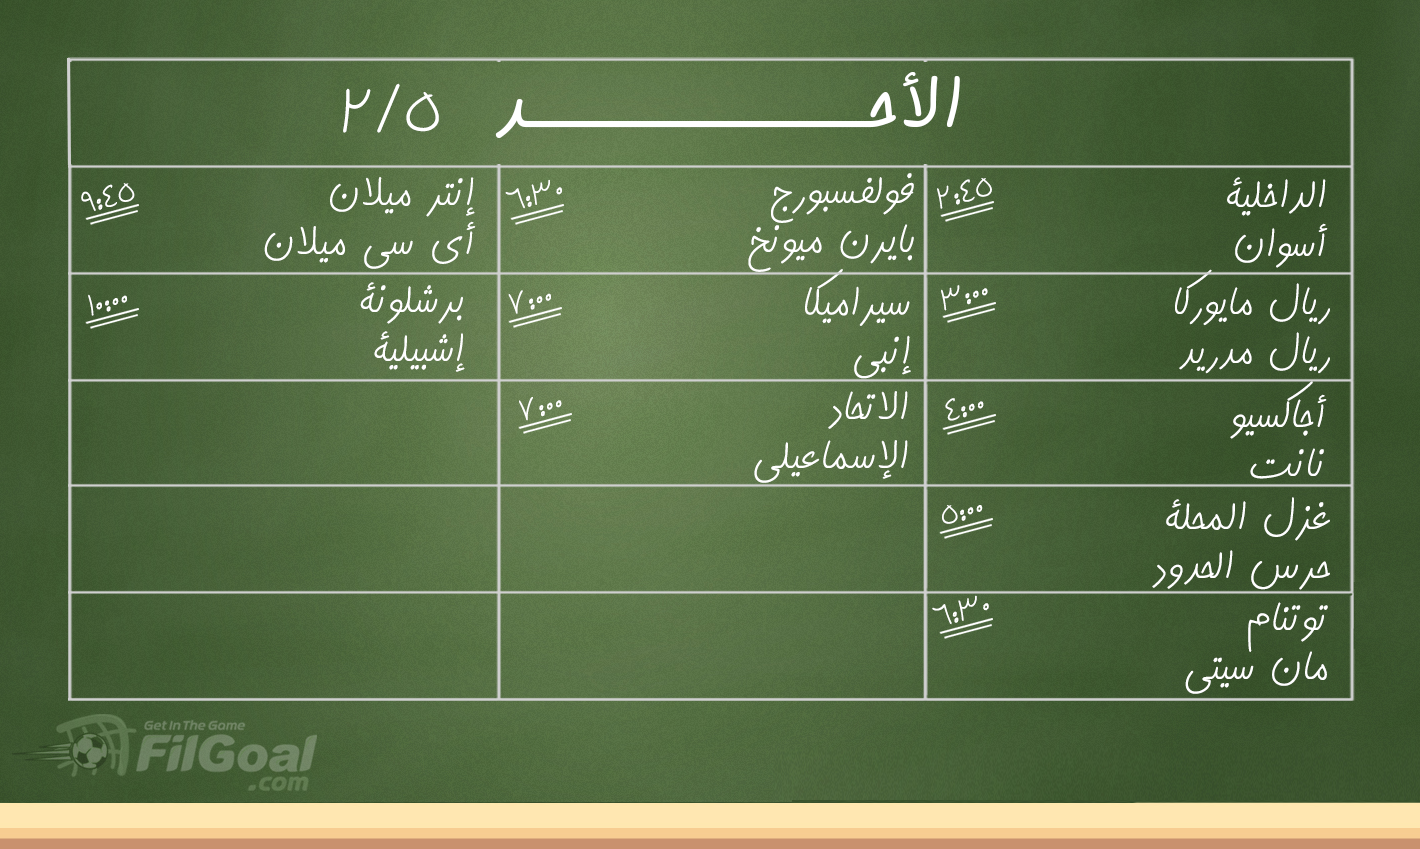 الأحـــــد ٢/٥
الداخلية
٢:٤٥
أسوان
ريال مايوركا
٣:٠٠
ريال مدريد
أجاكسيو
٤:٠٠
نانت
غزل المحلة
٥:٠٠
حرس الحدود
توتنام
٦:٣٠
مان سيتى
فولفسبورج
٦:٣٠
بايرن ميونخ
سيراميكا
٧:٠٠
إنبى
الاتحاد
٧:٠٠
الإسماعيلى
إنتر ميلان
٩:٤٥
أى سى ميلان
برشلونة
١٠:٠٠
إشبيلية
Get In The Game
FilGoal
.com